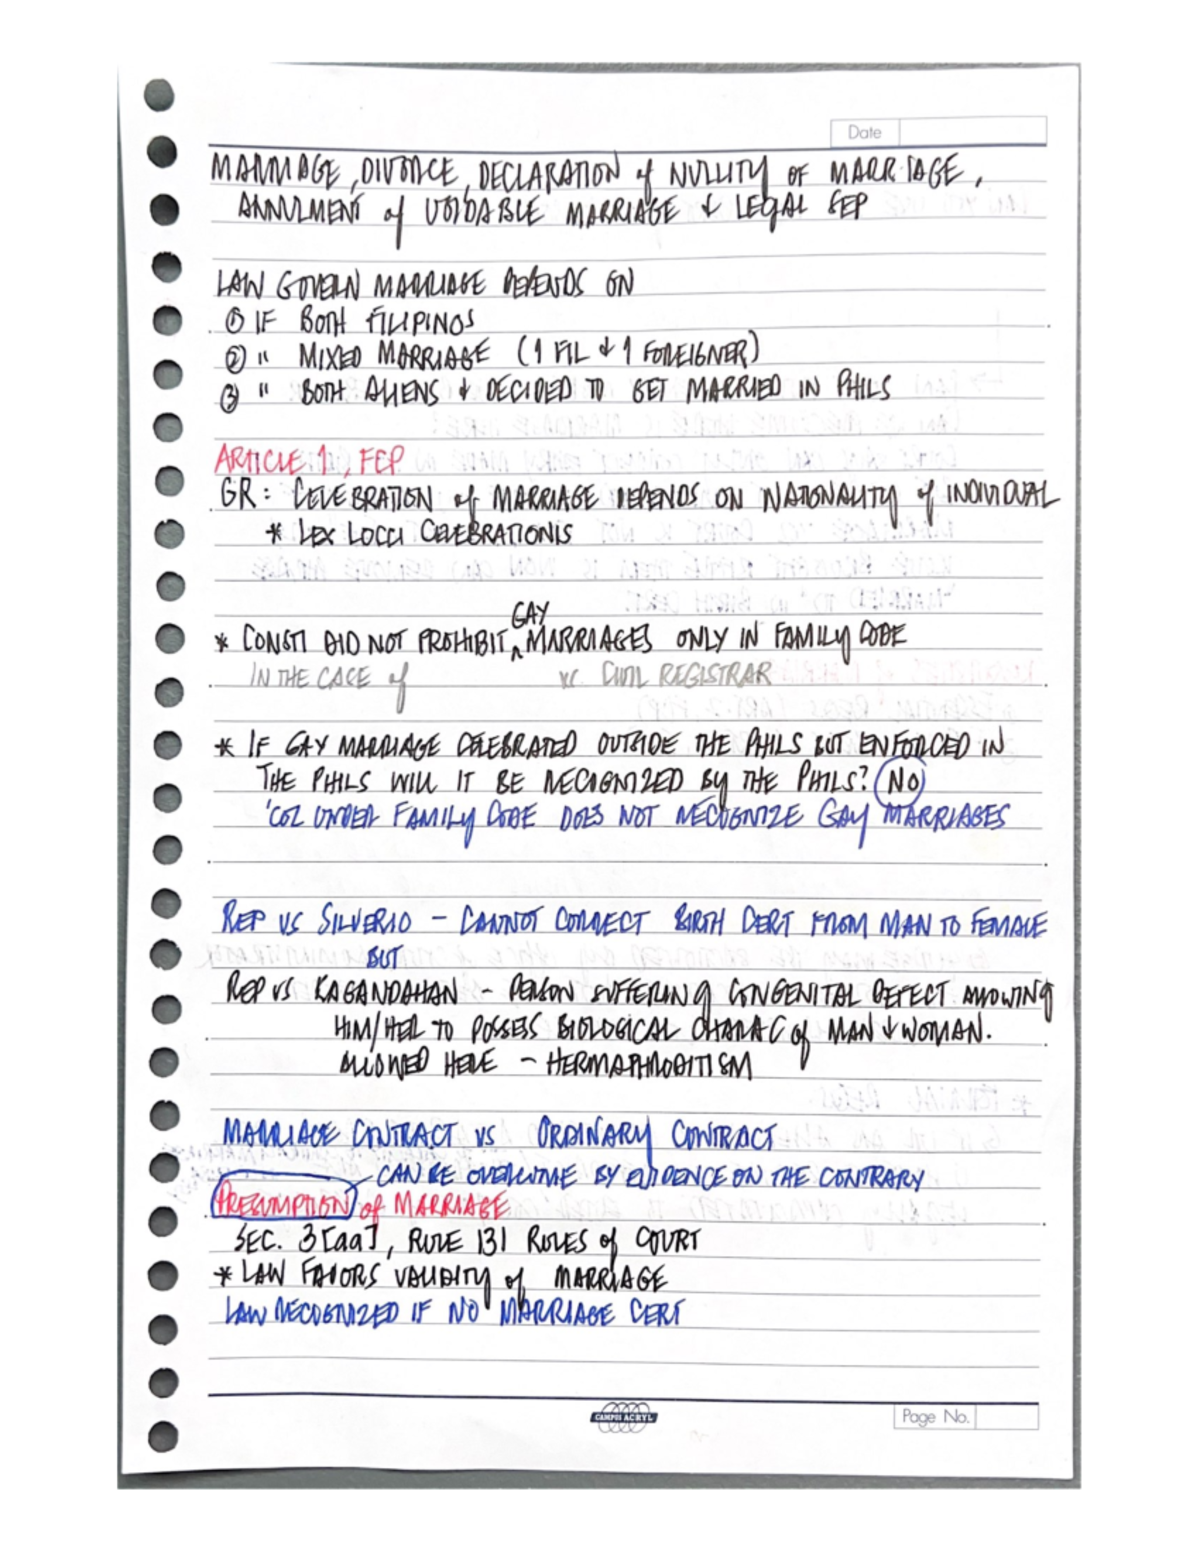 Date
MARRIAGE, DIVORCE, DECLARATION of NULLITY OF MARRIAGE,
ANNULMENT of VOIDABLE MARRIAGE & LEGAL SEP
LAW GOVERN MARRIAGE DEPENDS ON
① IF BOTH FILIPINOS
② " MIXED MARRIAGE (1 FIL & 1 FOREIGNER)
③ " BOTH ALIENS & DECIDED TO GET MARRIED IN PHILS
ARTICLE 1, FCP
GR: CELEBRATION of MARRIAGE DEPENDS ON NATIONALITY of INDIVIDUAL
* LEX LOCCI CELEBRATIONIS
GAY
* CONSTI DID NOT PROHIBIT ^ MARRIAGES ONLY IN FAMILY CODE
IN THE CASE of vs CIVIL REGISTRAR
* IF GAY MARRIAGE CELEBRATED OUTSIDE THE PHILS BUT ENFORCED IN
THE PHILS WILL IT BE RECOGNIZED BY THE PHILS? NO
'COZ UNDER FAMILY CODE DOES NOT RECOGNIZE GAY MARRIAGES
REP VS SILVERIO - CANNOT CORRECT BIRTH CERT FROM MAN TO FEMALE
BUT
REP VS KAGANDAHAN - PERSON SUFFERING CONGENITAL DEFECT ALLOWING
HIM/HER TO POSSES BIOLOGICAL CHARAC of MAN & WOMAN.
ALLOWED HERE - HERMAPHRODITISM
MARRIAGE CONTRACT VS ORDINARY CONTRACT
CAN BE OVERCOME BY EVIDENCE ON THE CONTRARY
PRESUMPTION of MARRIAGE
SEC. 3[aa], RULE 131 RULES of COURT
* LAW FAVORS VALIDITY of MARRIAGE
LAW RECOGNIZED IF NO MARRIAGE CERT
CAMPUS ACRYL
Page No.